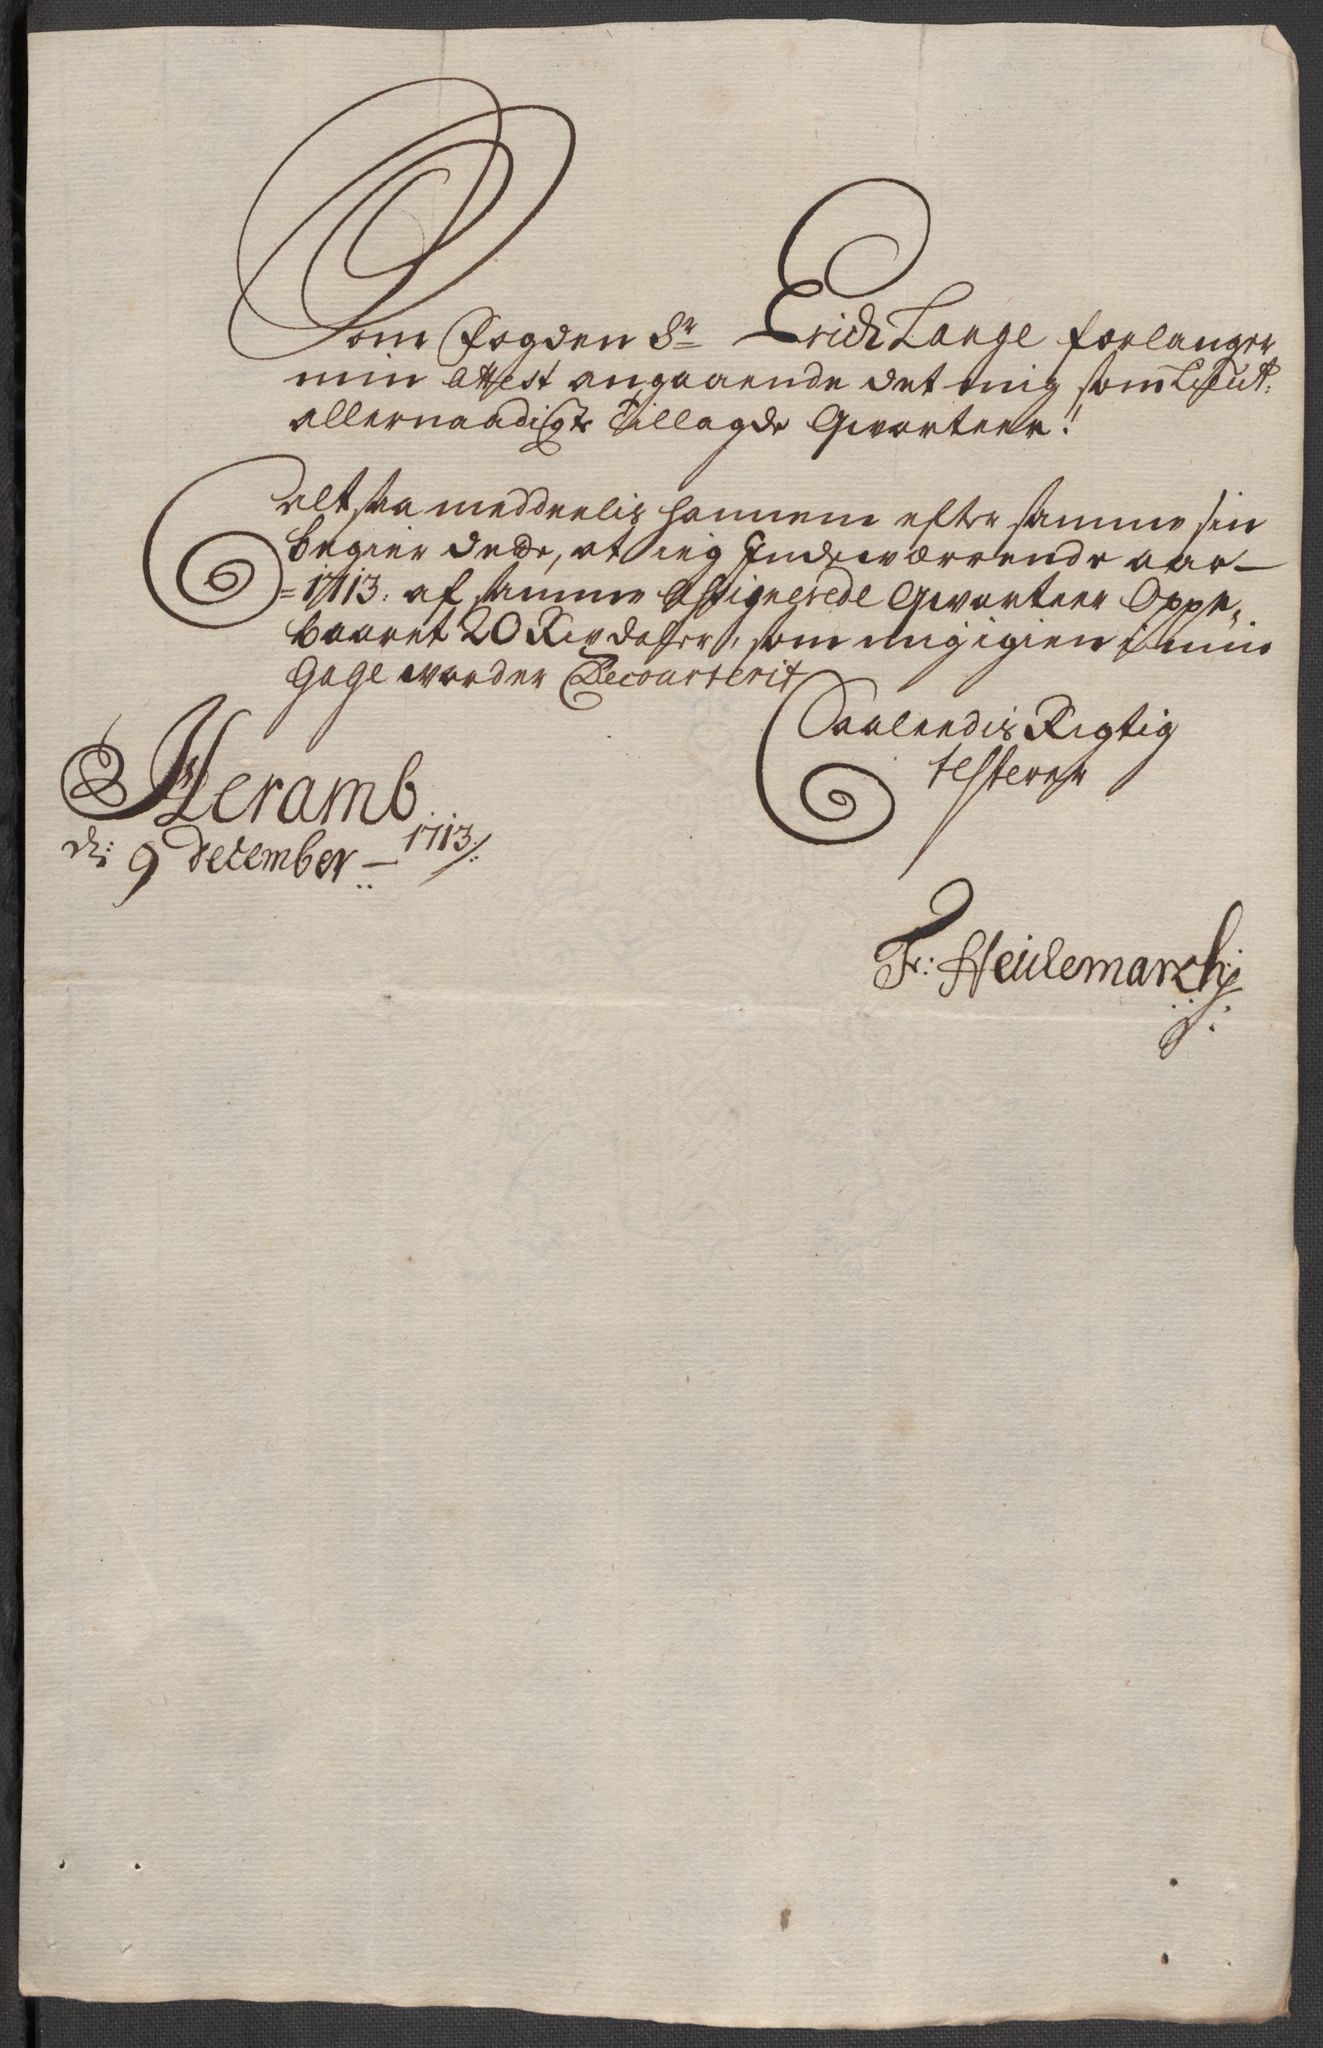 Som Fogden Sr Erich Lange forlanger
min Attest angaaende det mig som Lieut:
allernaadigst Tillagde Qvarteer!
altsaa meddeelis hannem efter samme sin
begier dette, at ieg Indeværrende aar
1713: af samme Assignerede Qvarteer Oppe,
baaret 20 Rixdaller, som mig igien i min
Gage vorder Decourterit
Saaleedis Rigtig
testerer
Heramb
d: 9 december 1713
Fr: Heidemarck